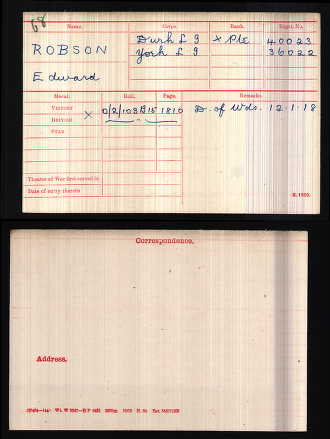 68
Name. Corps. Rank. Regtl. No.
ROBSON Durh L I × Pte 40023
York L I 36022
Edward
Medal. Roll. Page. Remarks.
VICTORY × 0/2/103B15 1810 D. of Wds. 12.1.18
BRITISH
STAR
Theatre of War first served in
Date of entry therein
K. 1380.
Correspondence.
Address.